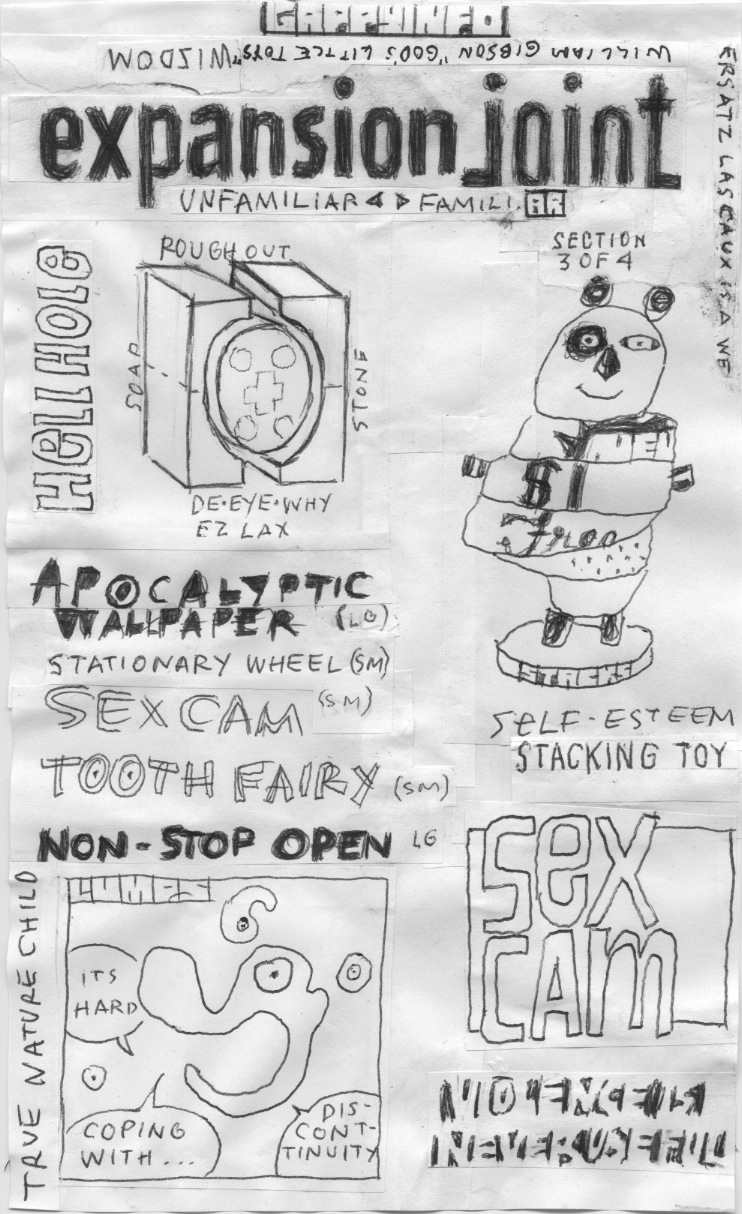 WILLIAM GIBSON "GOD'S LITTLE TOYS"
WIZDOM
ERSATZ LASCAUX IS A WE
expansion joint
UNFAMILIAR FAMILIAR
HellHOlO
ROUGH OUT
SOAP
STONE
DE·EYE·WHY
EZ LAX
SECTION
3 OF 4
$
SELF-ESTEEM
STACKING TOY
APOCALYPTIC
WALLPAPER (LG)
STATIONARY WHEEL (SM)
SEX CAM (SM)
TOOTH FAIRY (SM)
NON-STOP OPEN LG
TRUE NATURE CHILD
ITS
HARD
COPING
WITH...
DIS-
CONT-
TINUITY
sex
cam